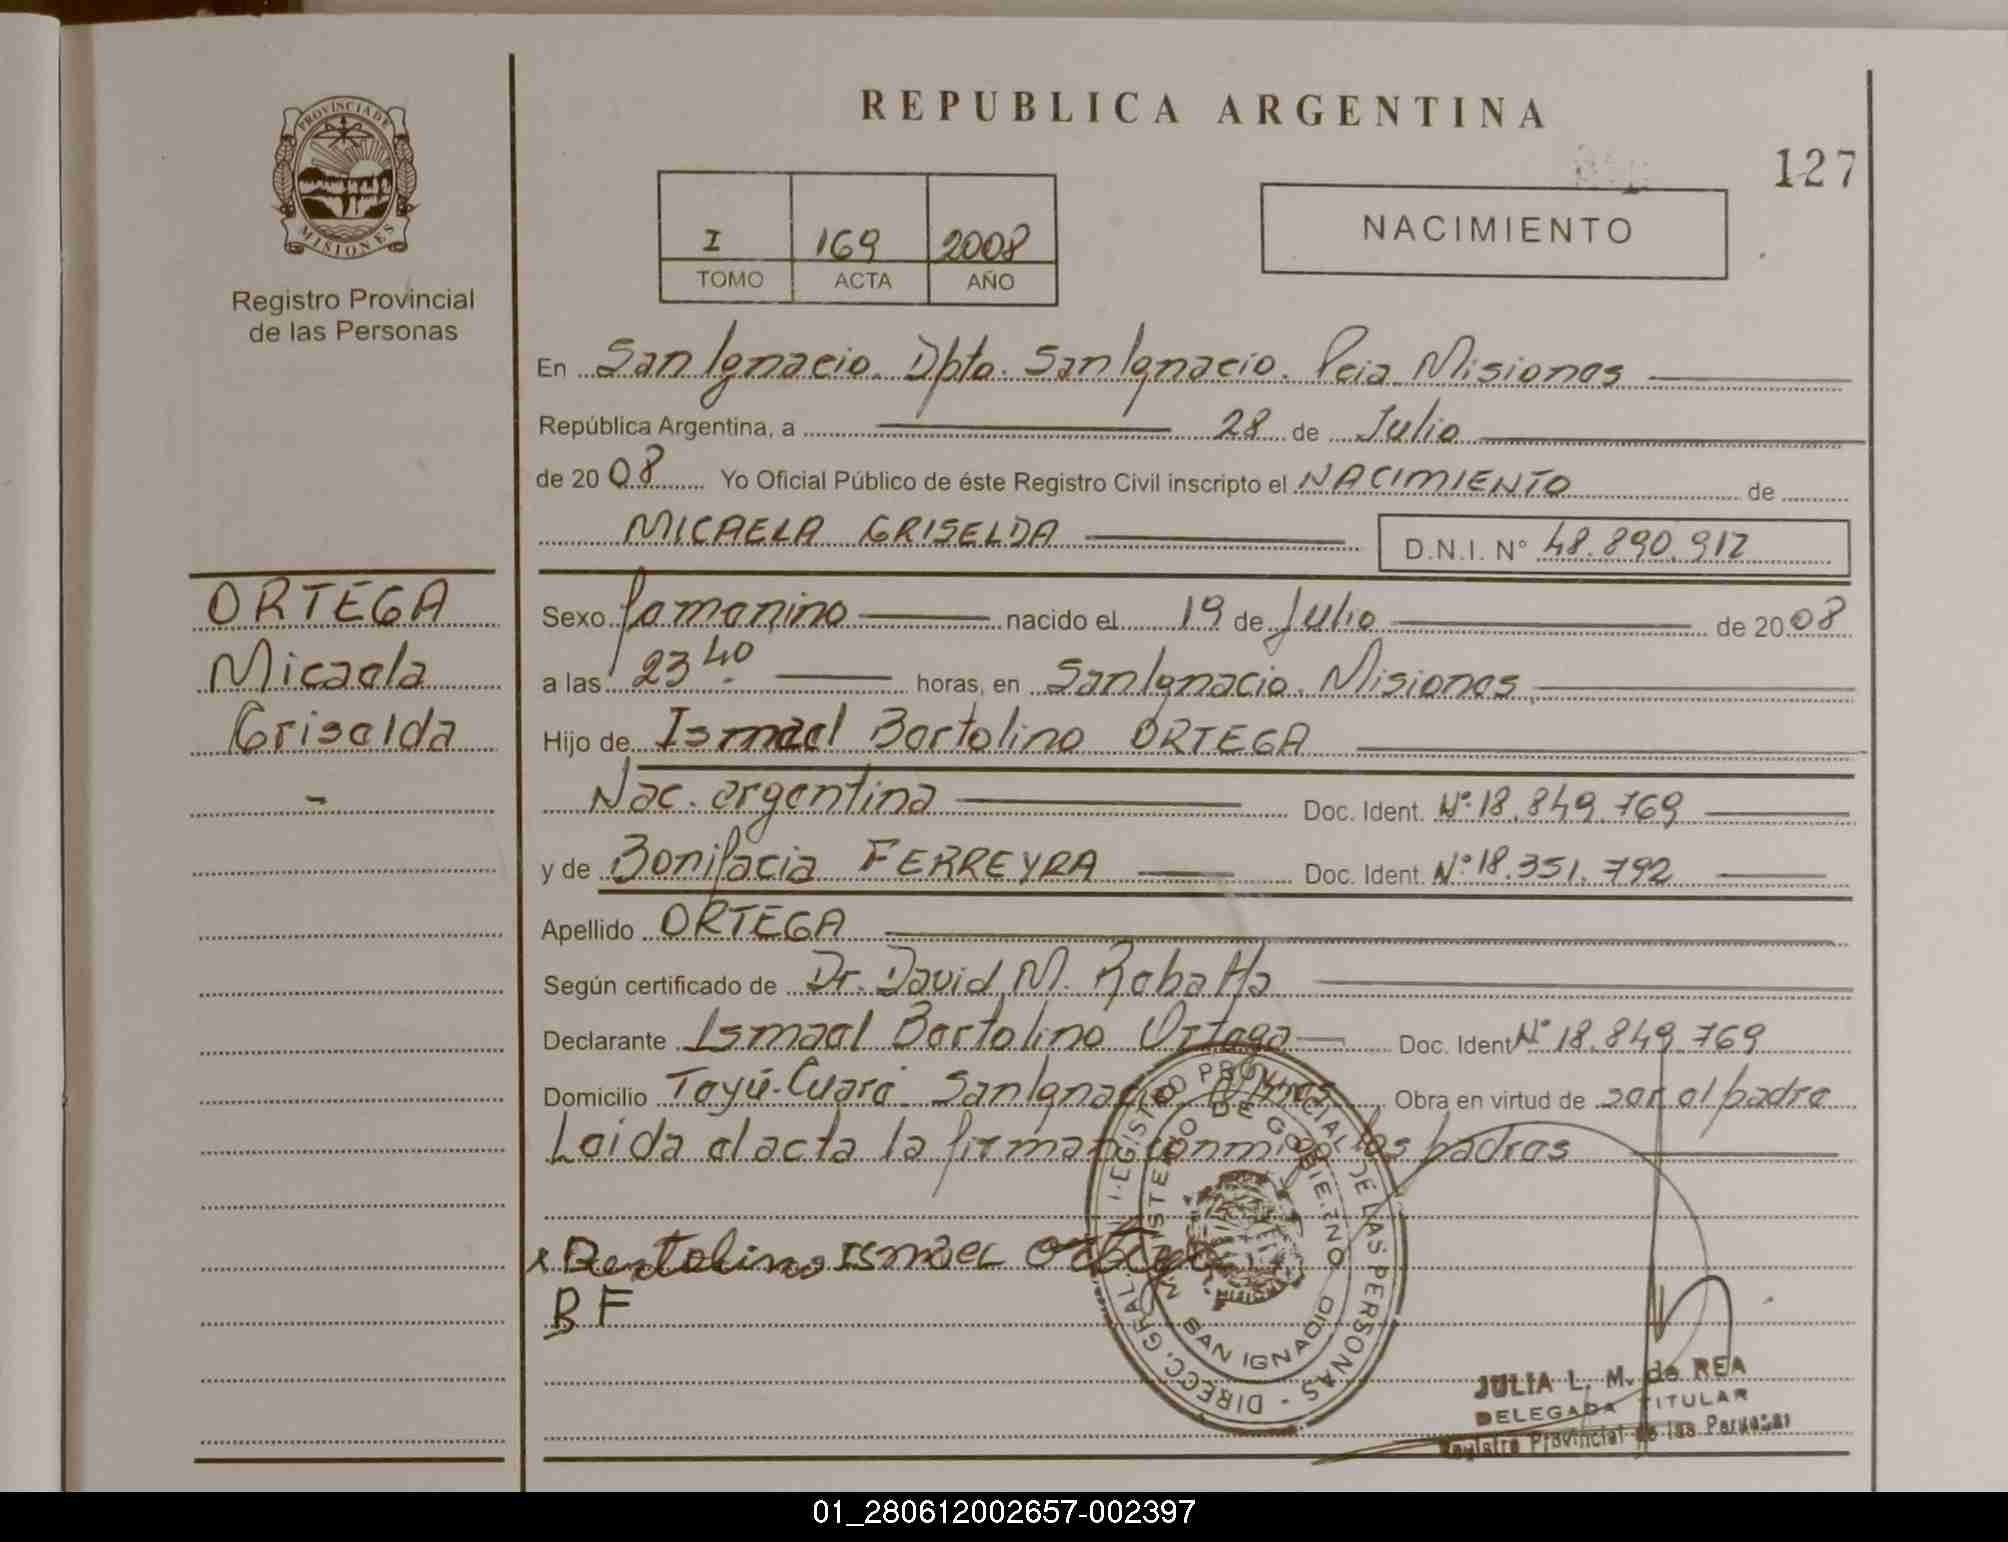 PROVINCIA DE
MISIONES
Registro Provincial
de las Personas
REPUBLICA ARGENTINA
127
I 169 2008
TOMO ACTA AÑO
NACIMIENTO
En San Ignacio. Dpto. San Ignacio. Pcia Misiones
República Argentina, a 28 de Julio
de 2008 Yo Oficial Público de éste Registro Civil inscripto el NACIMIENTO de
MICAELA GRISELDA D.N.I. N° 48.890.912
ORTEGA
Micaela
Griselda
-
Sexo femenino nacido el 19 de Julio de 2008
a las 23 40 horas, en San Ignacio. Misiones
Hijo de Ismael Bertolino ORTEGA
Nac. argentina Doc. Ident. N° 18.849.769
y de Bonifacia FERREYRA Doc. Ident. N° 18.351.792
Apellido ORTEGA
Según certificado de Dr. David M. Rabatta
Declarante Ismael Bertolino Ortega Doc. Ident N° 18.849.769
Domicilio Teyú-Cuaré San Ignacio Mnes Obra en virtud de ser el padre
Leida el acta la firman conmigo los padres
x Bertolino ISmaeL Ortega
BF
DIRECC. GRAL. REGISTRO PROVINCIAL DE LAS PERSONAS -
MINISTERIO DE GOBIERNO
MISIONES
SAN IGNACIO
JULIA L. M. de REA
DELEGADA TITULAR
Registro Provincial de las Personas
01_280612002657-002397